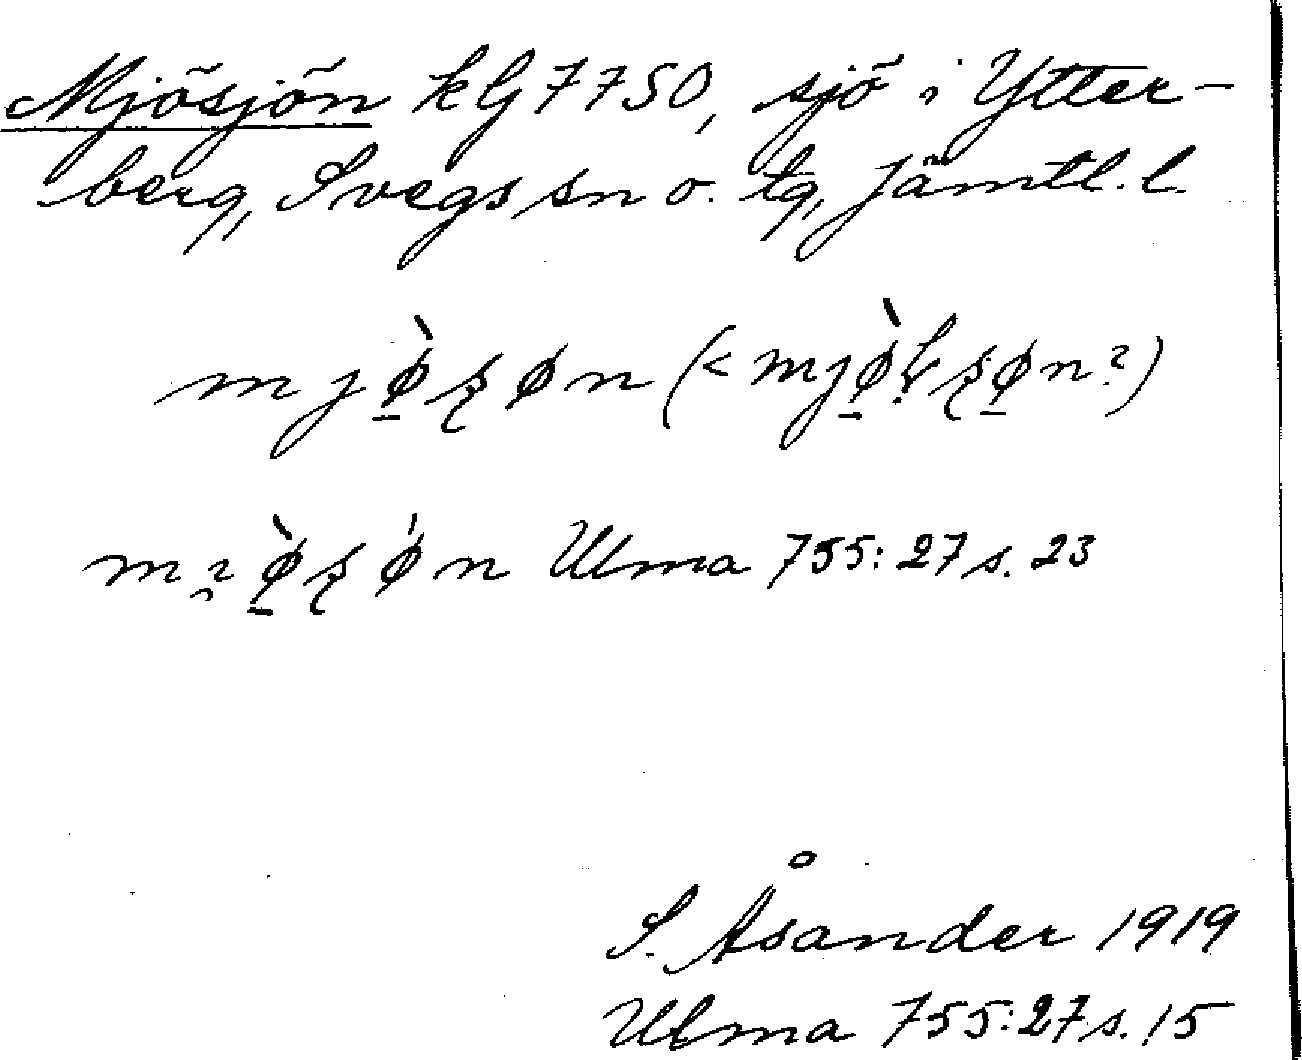 Mjösjön kG7750, sjö i Ytter-
berg, Svegs sn o. tg, Jämtl. l.
mjø̱̀ʂøn (< mjø̱̀ɽʂø̱n?)
mı̯ø̱̀ʂǿn Ulma 755:27 s. 23
S. Åsander 1919
Ulma 755:27 s. 15